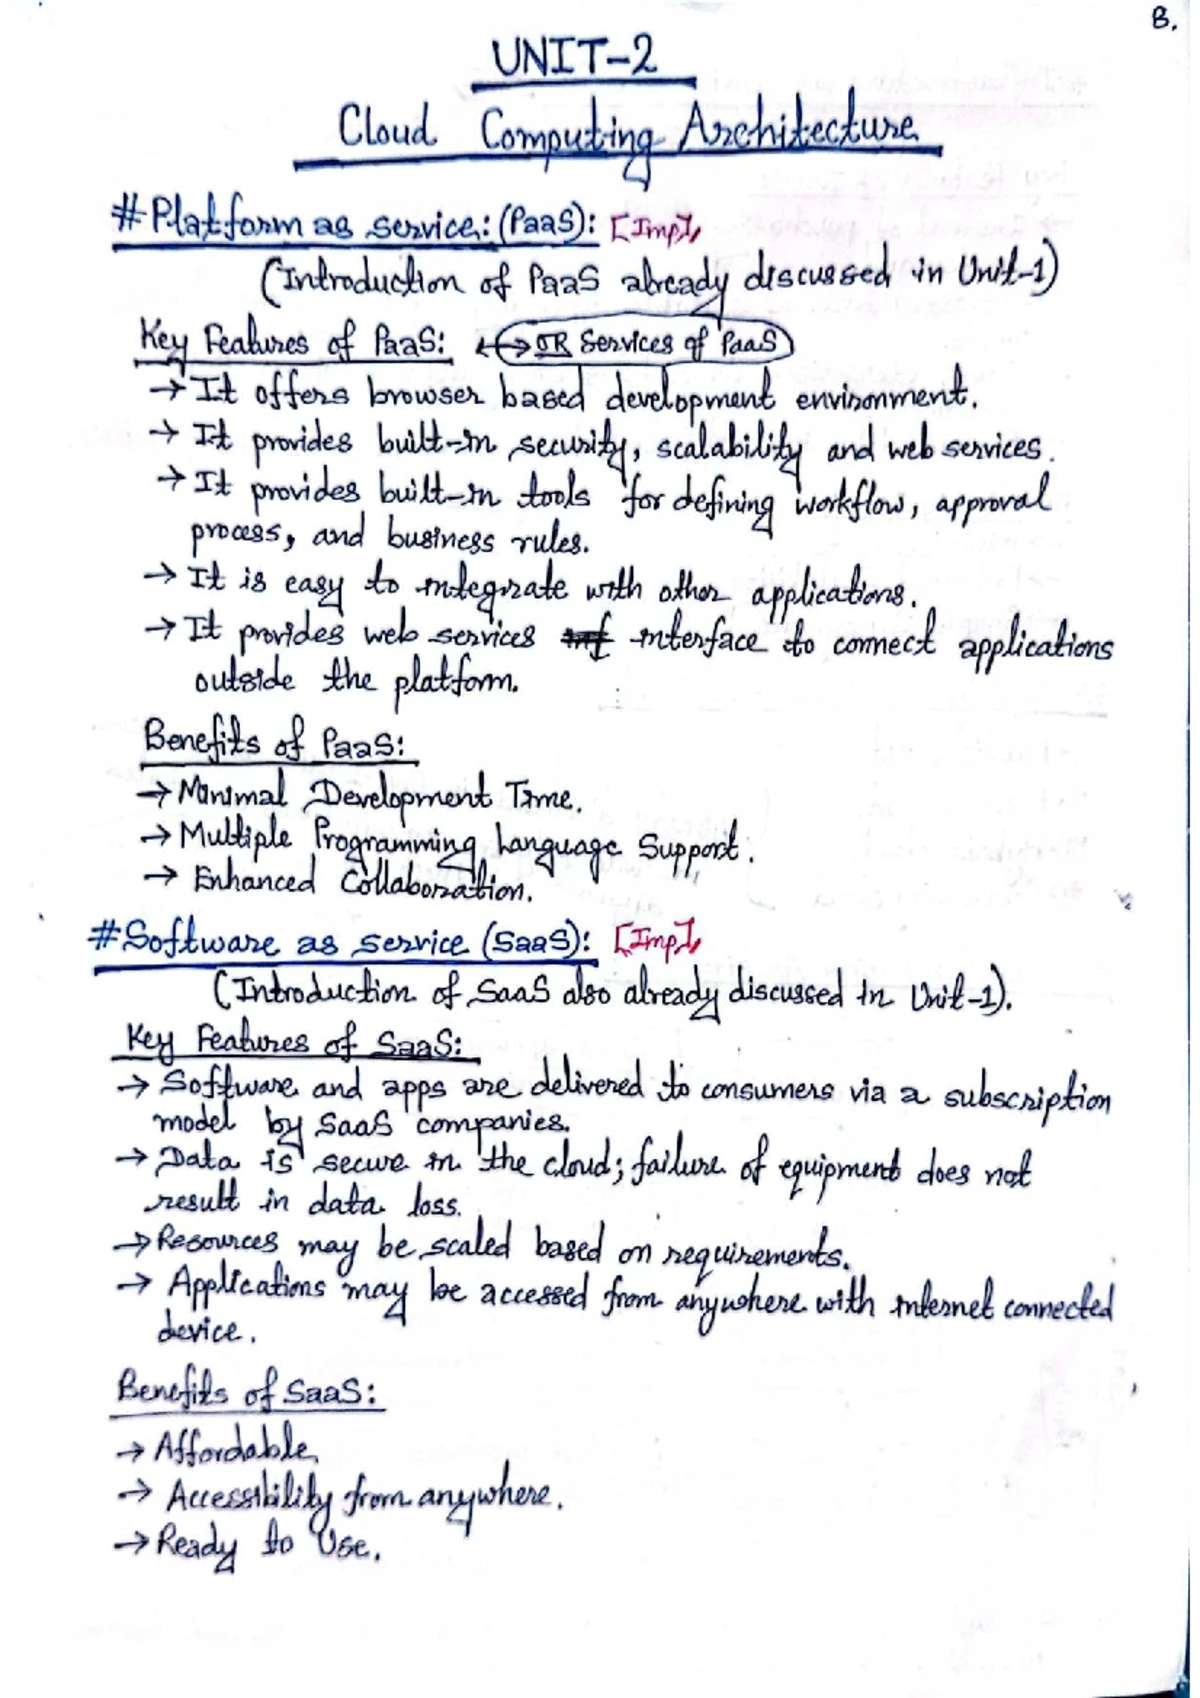 8.
UNIT-2
Cloud Computing Architecture
# Platform as service: (PaaS): [Imp]
(Introduction of PaaS already discussed in Unit-1)
Key Features of PaaS: OR Services of PaaS
→ It offers browser based development environment.
→ It provides built-in security, scalability and web services.
→ It provides built-in tools for defining workflow, approval
process, and business rules.
→ It is easy to integrate with other applications.
→ It provides web services interface to connect applications
outside the platform.
Benefits of PaaS:
→ Minimal Development Time.
→ Multiple Programming Language Support.
→ Enhanced Collaboration.
# Software as service (SaaS): [Imp]
(Introduction of SaaS also already discussed in Unit-1).
Key Features of SaaS:
→ Software and apps are delivered to consumers via a subscription
model by SaaS companies.
→ Data is secure in the cloud; failure of equipment does not
result in data loss.
→ Resources may be scaled based on requirements.
→ Applications may be accessed from anywhere with internet connected
device.
Benefits of SaaS:
→ Affordable.
→ Accessibility from anywhere.
→ Ready to Use.